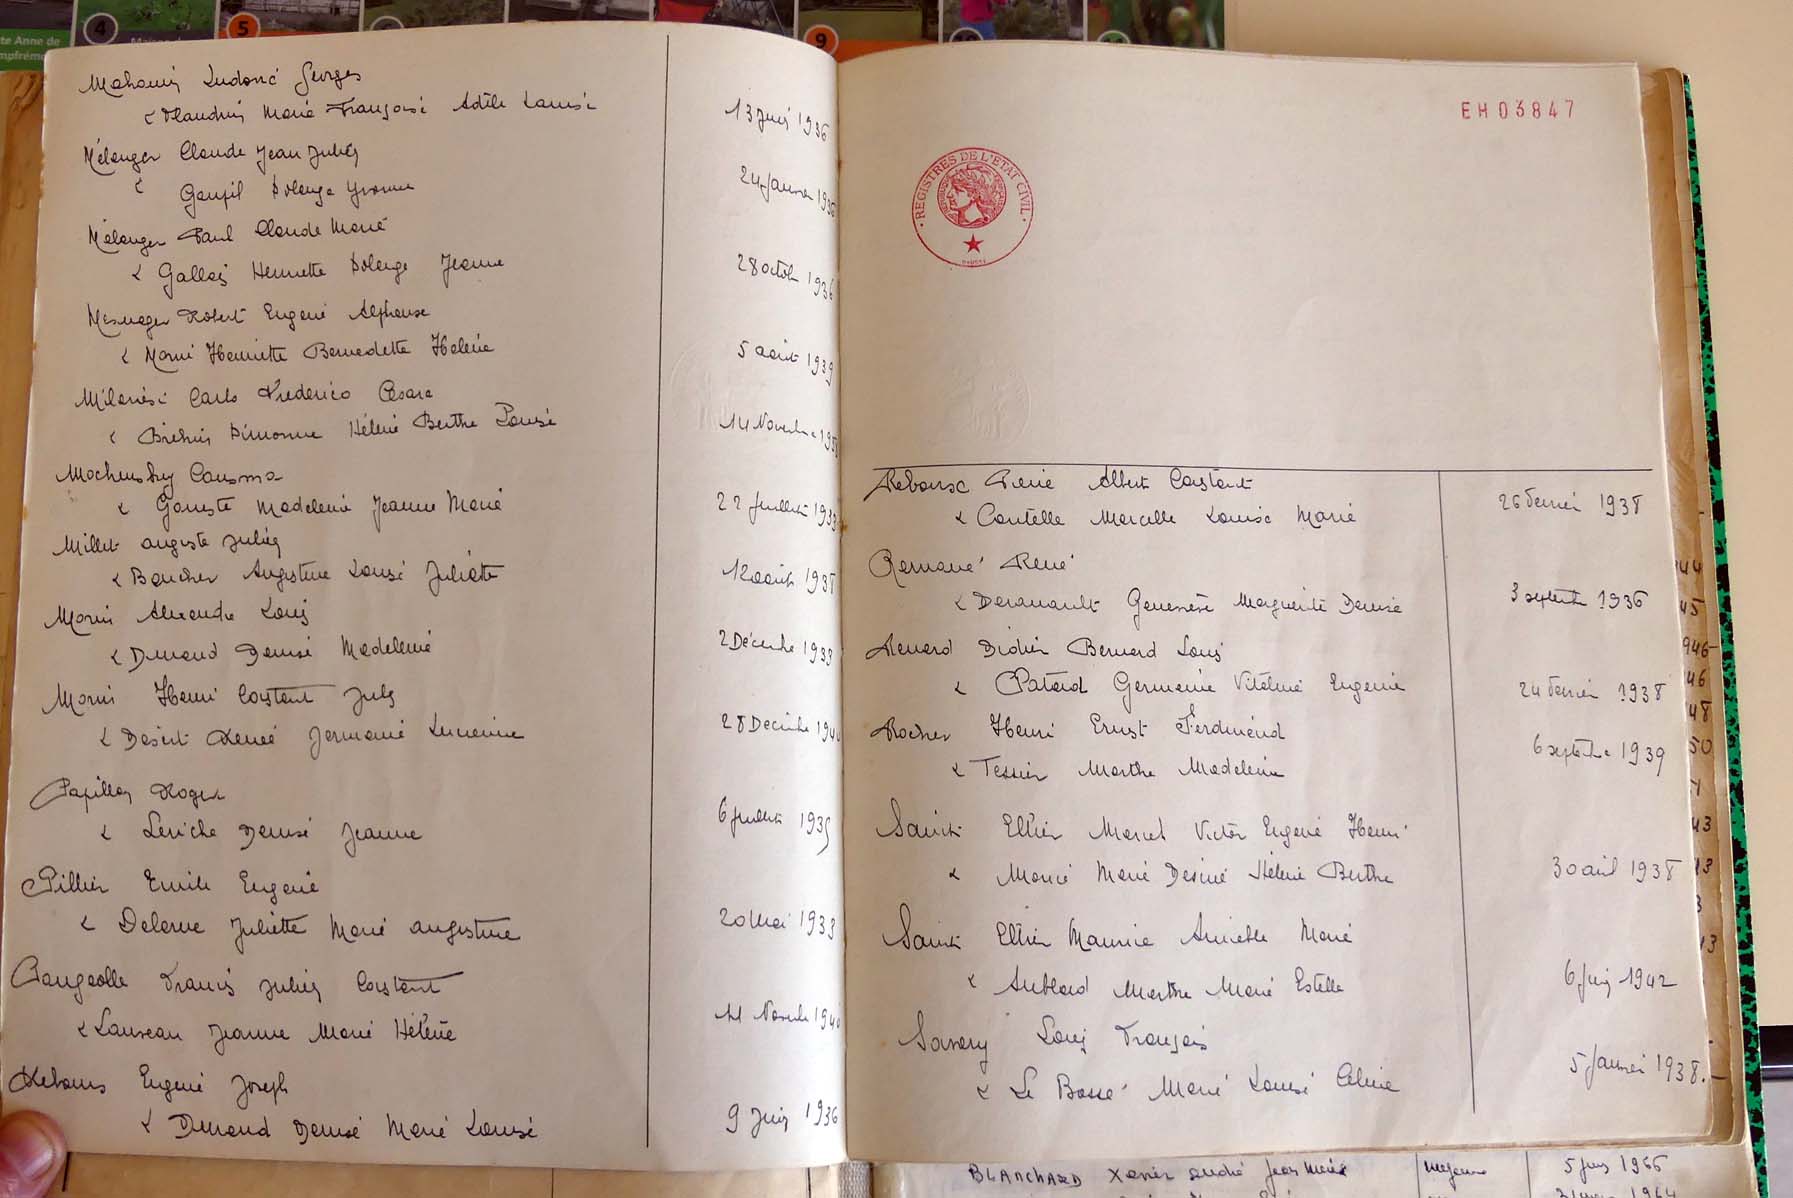 4
5
9
te Anne de
mpfrémo
Mahouin Ludovic Georges
& Flaudrin Marie Françoise Adèle Louise 13 Juin 1936
Mélanger Claude Jean Julien
& Goupil Solange Yvonne 24 Janvier 1936
Mélanger Paul Claude Marie
& Gallais Henriette Solange Jeanne 28 octobre 1936
Mesnager Robert Eugène Alphonse
& Morin Henriette Bernadette Hélène 5 août 1939
Milanési Carlo Frederico Cesare
& Simonne Hélène Berthe Louise 14 Novembre
Cousma
& Madeleine Jeanne Marie 22 Juillet 1933
Millet auguste Julien
& Boucher Augustine Louise Juliette 12 août 1938
Morin Alexandre Louis
& Durand Denise Madeleine 2 Décembre 1933
Morin Henri Constant Jules
& Désert Renée Germaine Lucienne 28 Decembre 1940
Papillon Roger
& Leriche Denise Jeanne 6 Juillet 1935
Pillier Emile Eugène
& Delarue Juliette Marie augustine 20 Mai 1933
Francis Julien Constant
& Jeanne Marie Hélène Novembre 1940
Eugène Joseph
& Durand Denise Marie Louise 9 Juin 1936
EH03847
REGISTRES DE L'ETAT CIVIL
René Albert Constant
& Coutelle Marcelle Louise Marie 26 Février 1938
René
& Geneviève Marguerite Denise 3 septembre 1936
Renard Didier Bernard Louis
& Patard Germaine Eugénie 24 Février 1938
Rocher Henri Ernest Ferdinand
& Tessier Marthe Madeleine 6 septembre 1939
Saint Ellier Marcel Victor Eugène Henri
& Marie Désirée Hélène Berthe 30 avril 1938
Saint Ellier Maurice Aimable Marie
& Aublard Marthe Marie Estelle 6 Juin 1942
Savary Louis François
& Le Bossé Marie Louise Céline 5 Janvier 1938.
44
45
946
46
48
50
43
13
3
13
BLANCHARD Xavier andré Jean Marie majeure 5 Juin 1965
1964